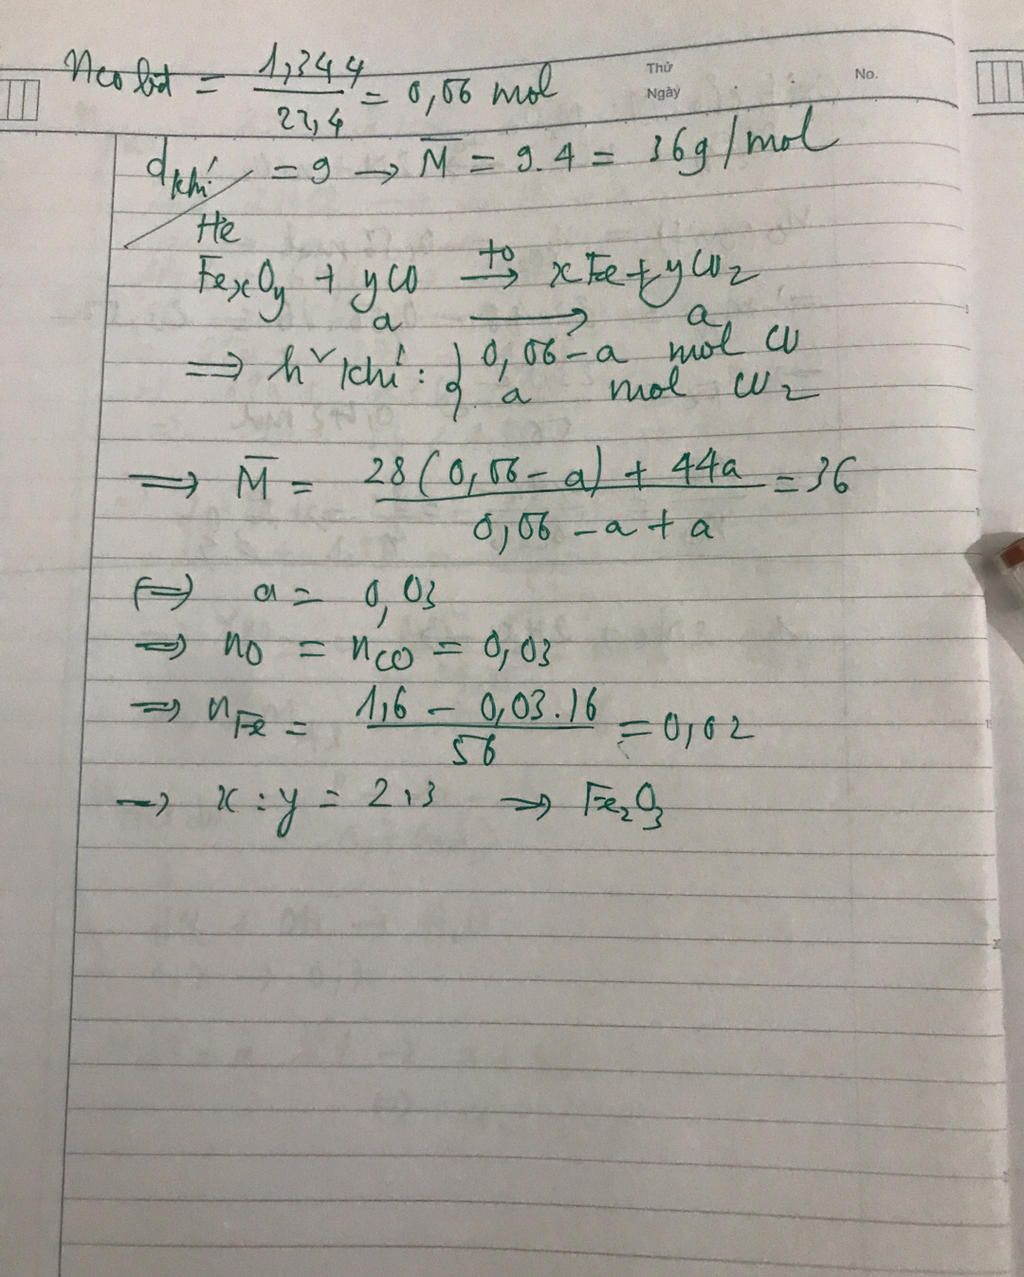 nCO bđ = 1,344 / 22,4 = 0,06 mol
Thứ
Ngày
No.
d khí/He = 9 → M̅ = 9.4 = 36g/mol
FexOy + yCO →(t°) xFe + yCO2
a → a
⟹ h² khí: { 0,06 - a mol CO
a mol CO2
⟹ M̅ = (28(0,06 - a) + 44a) / (0,06 - a + a) = 36
⟺ a = 0,03
⟹ nO = nCO = 0,03
⟹ nFe = (1,6 - 0,03.16) / 56 = 0,02
→ x : y = 2:3 ⟹ Fe2O3